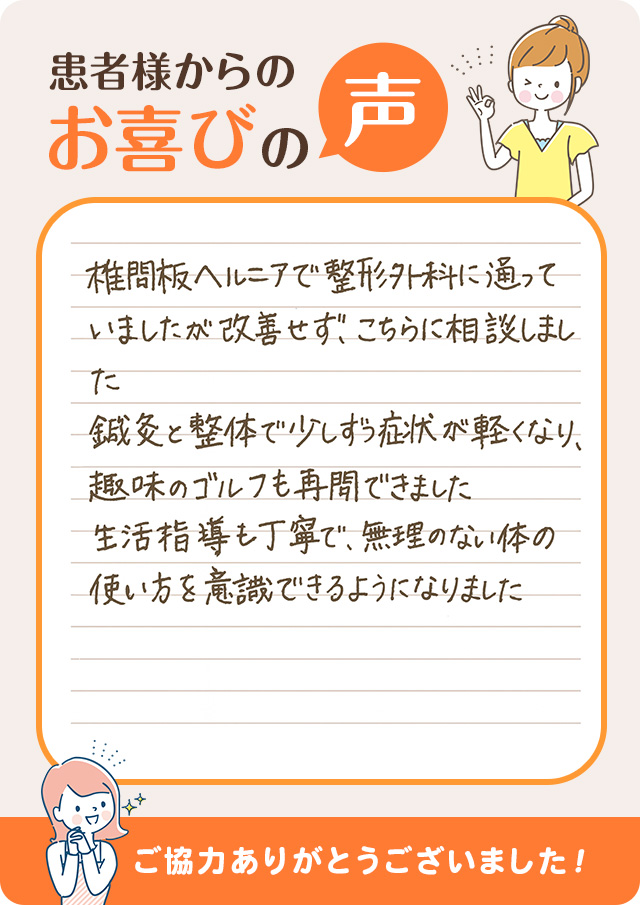 患者様からの
お喜びの声
椎間板ヘルニアで整形外科に通って
いましたが改善せず、こちらに相談しまし
た
鍼灸と整体で少しずつ症状が軽くなり、
趣味のゴルフも再開できました
生活指導も丁寧で、無理のない体の
使い方を意識できるようになりました
ご協力ありがとうございました!